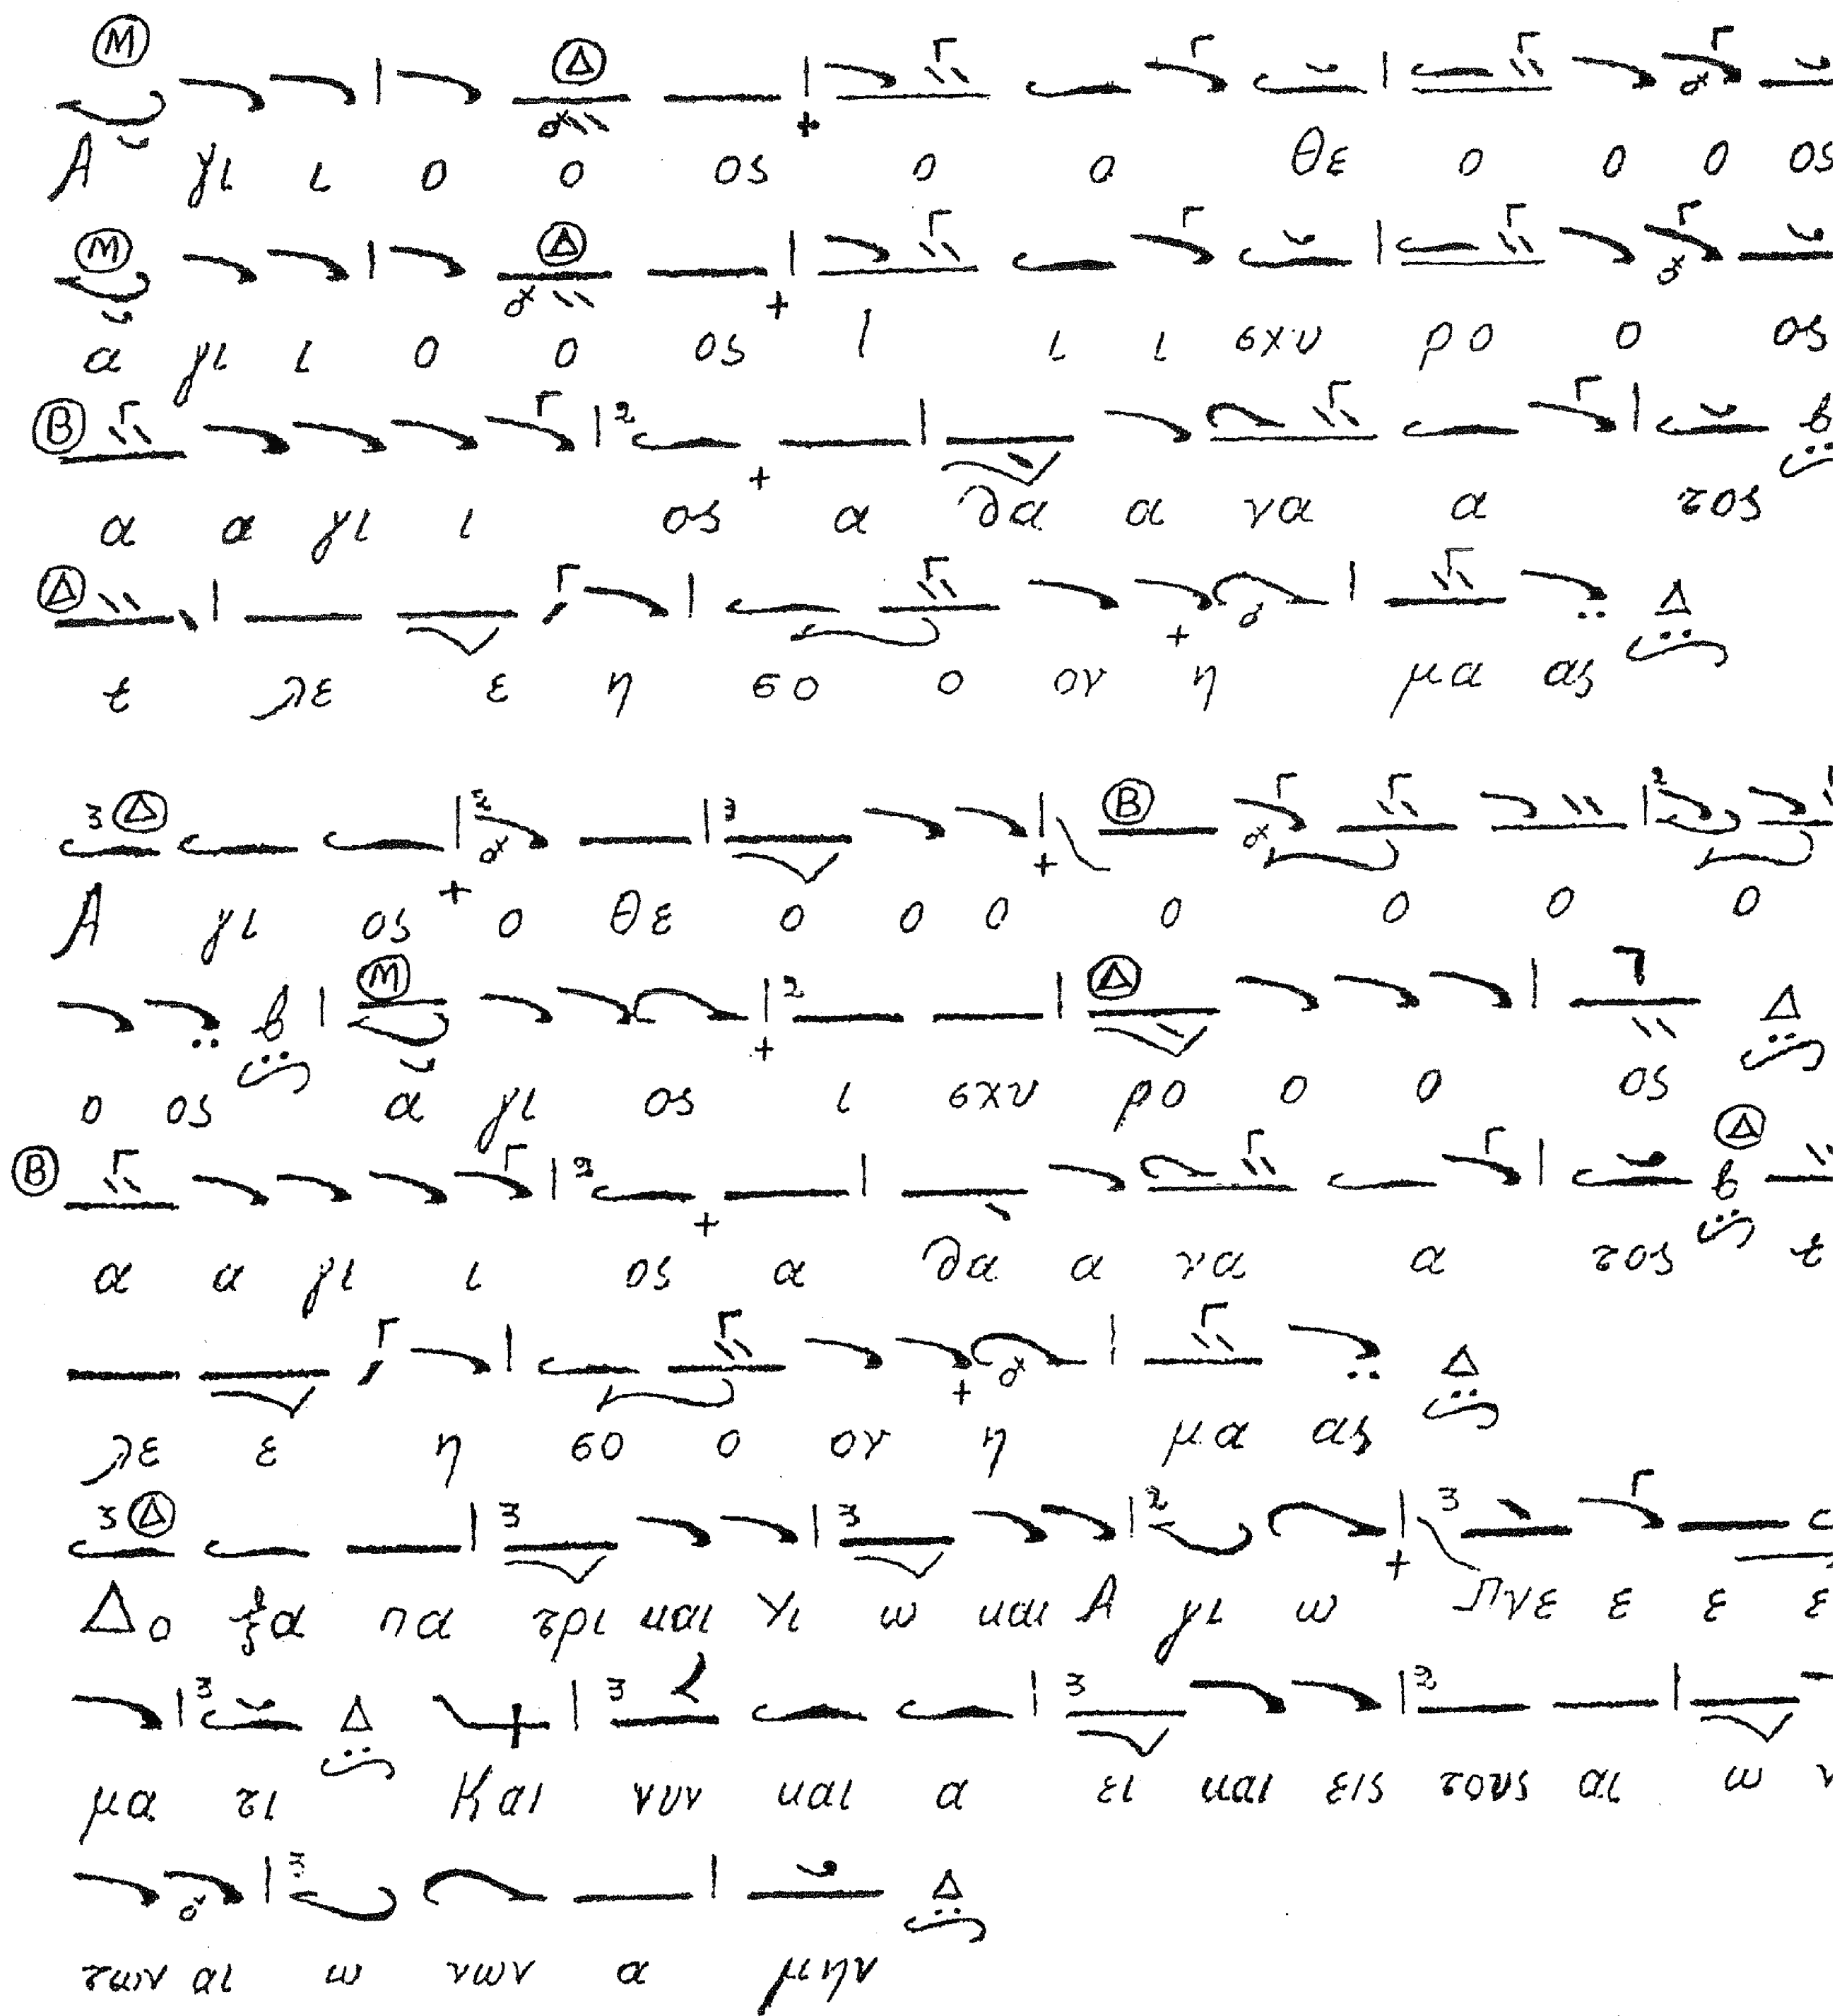 Α γι ι ο ο ος ο ο θε ο ο ο ος
α γι ι ο ο ος Ι ι ι σχυ ρο ο ος
α α γι ι ος α θα α να α τος
ε λε ε η σο ο ον η μα ας
Α γι ος ο θε ο ο ο ο ο ο ο
ο ος α γι ος ι σχυ ρο ο ο ος
α α γι ι ος α θα α να α τος ε
λε ε η σο ο ον η μα ας
Δο ξα πα τρι και Υι ω και Α γι ω Πνε ε ε ε
μα τι Και νυν και α ει και εις τους αι ω ν
των αι ω νων α μην